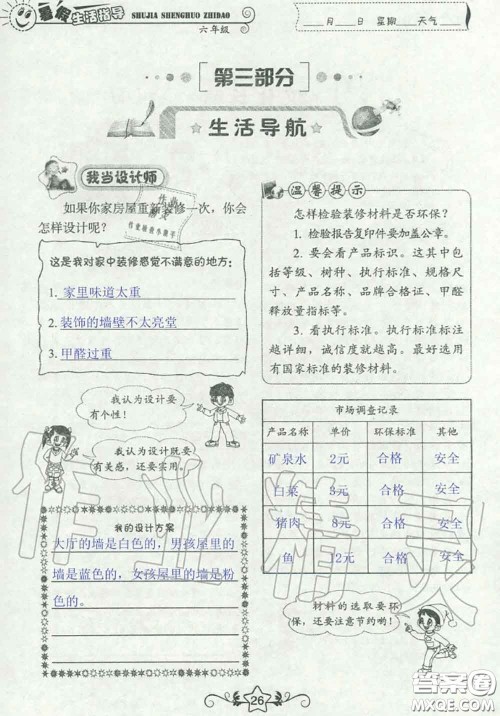 暑假生活指导
SHUJIA SHENGHUO ZHIDAO
六年级
月 日 星期 天气
第三部分
★生活导航★
我当设计师
如果你家房屋重新装修一次，你会
怎样设计呢？
这是我对家中装修感觉不满意的地方：
1. 家里味道太重
2. 装饰的墙壁不太亮堂
3. 甲醛过重
我认为设计要
有个性！
我认为设计既要
有美感，还要实用。
我的设计方案
大厅的墙是白色的，男孩屋里的
墙是蓝色的，女孩屋里的墙是粉
色的。
温馨提示
怎样检验装修材料是否环保？
1. 检验报告复印件要加盖公章。
2. 要会看产品标识。这其中包
括等级、树种、执行标准、规格尺
寸、产品名称、品牌合格证、甲醛
释放量指标等。
3. 看执行标准。执行标准标注
越详细，诚信度就越高。最好选用
有国家标准的装修材料。
市场调查记录
产品名称 单价 环保标准 其他
矿泉水 2元 合格 安全
白菜 3元 合格 安全
猪肉 8元 合格 安全
鱼 12元 合格 安全
材料的选取要环
保，还要注意节约哟！
作业精灵
26
答案圈
MXQE.COM